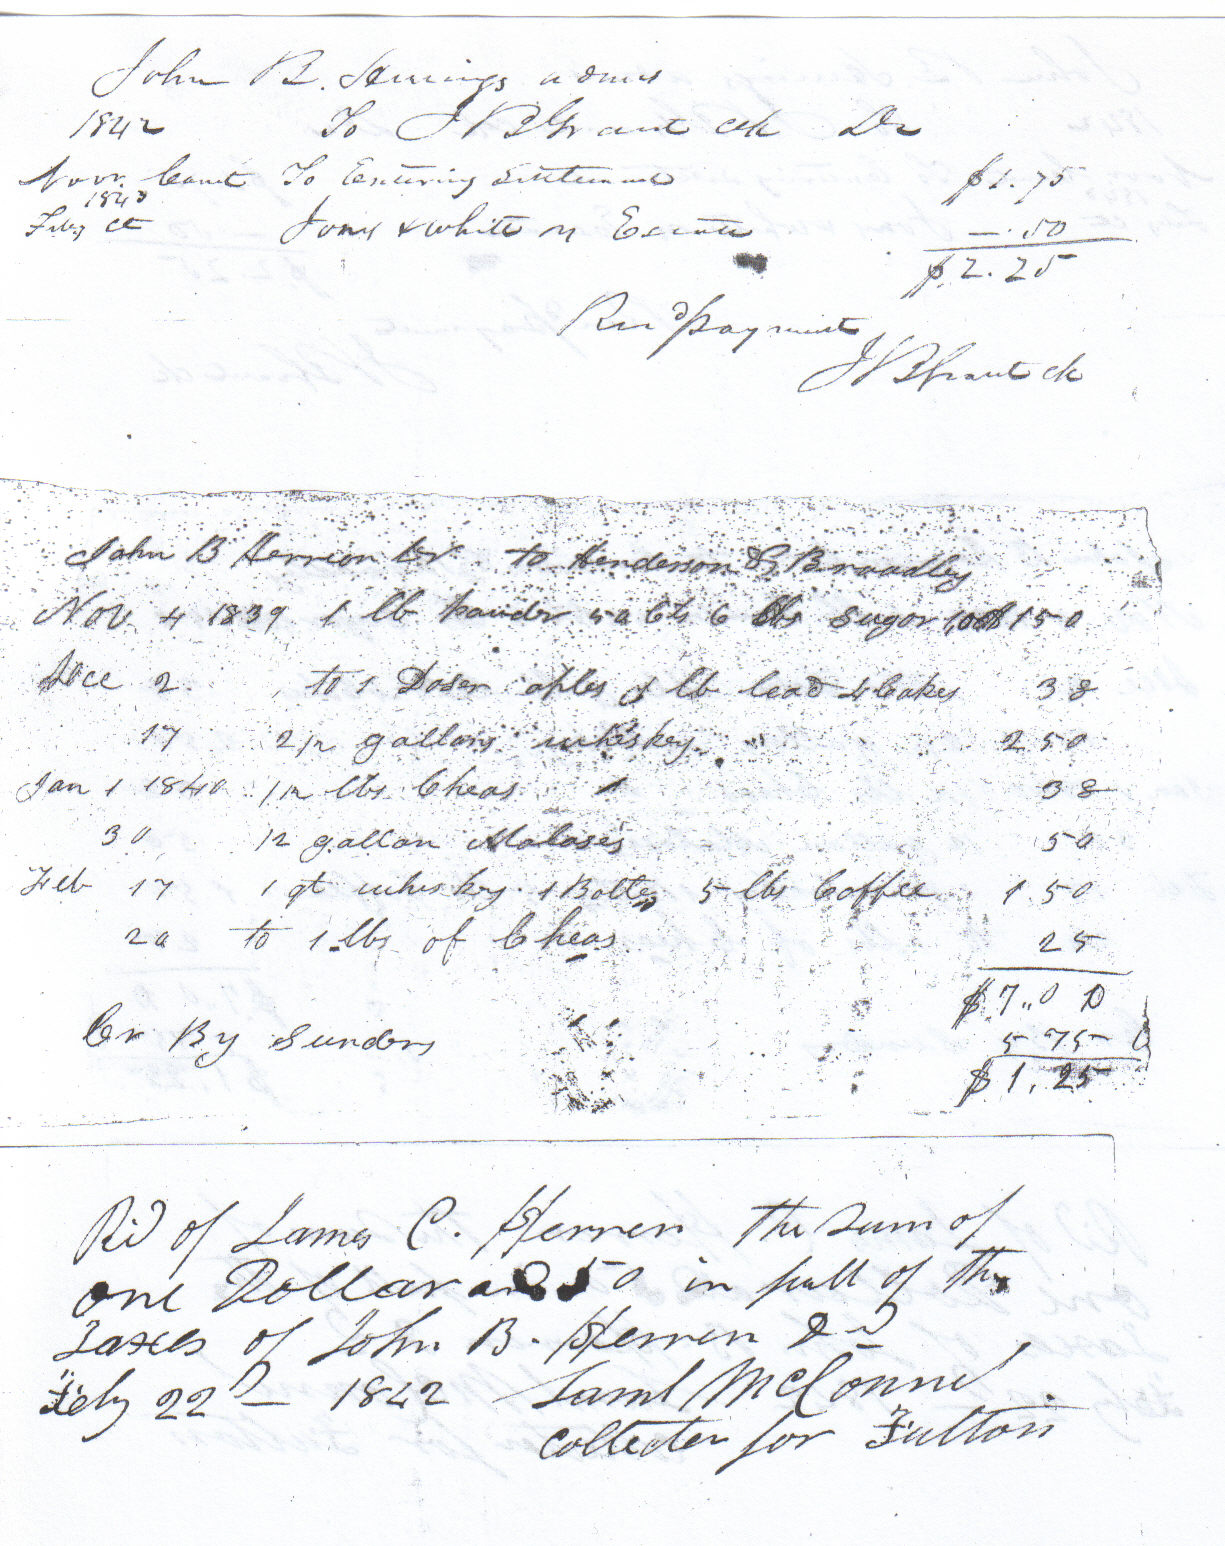 John B. Herrings adms
1842 To J B Grant clk Dr
Novr. Court To Entering Settlement $1.75
1843
Feby ct Jones & White vs Excutr — .50
$2.25
Recd payment
J B Grant clk
John B Herrion Dr to Henderson & Braadley
Nov 4 1839 1 lb pauder 50 Cts 6 lbs Sugor 1,00 1 50
Dce 2 to 1 Dosen aples & lb lead 4 Cakes 38
17 2 1/2 gallons whiskey 2 50
Jan 1 1840 1 1/2 lbs Cheas 38
30 1/2 gallon Malases 50
Feb 17 1 qt whiskey 1 Bottle 5 lbs Coffee 1 50
20 to 1 lbs of Cheas 25
$7.00
Cr By Sunders 5 75
$1.25
Rd of James C. Herren the Sum of
one Dollar and 50 in full of the
Taxes of John B. Herren Dd
Feby 22d — 1842 Saml McConnel.
collecter for Fulton